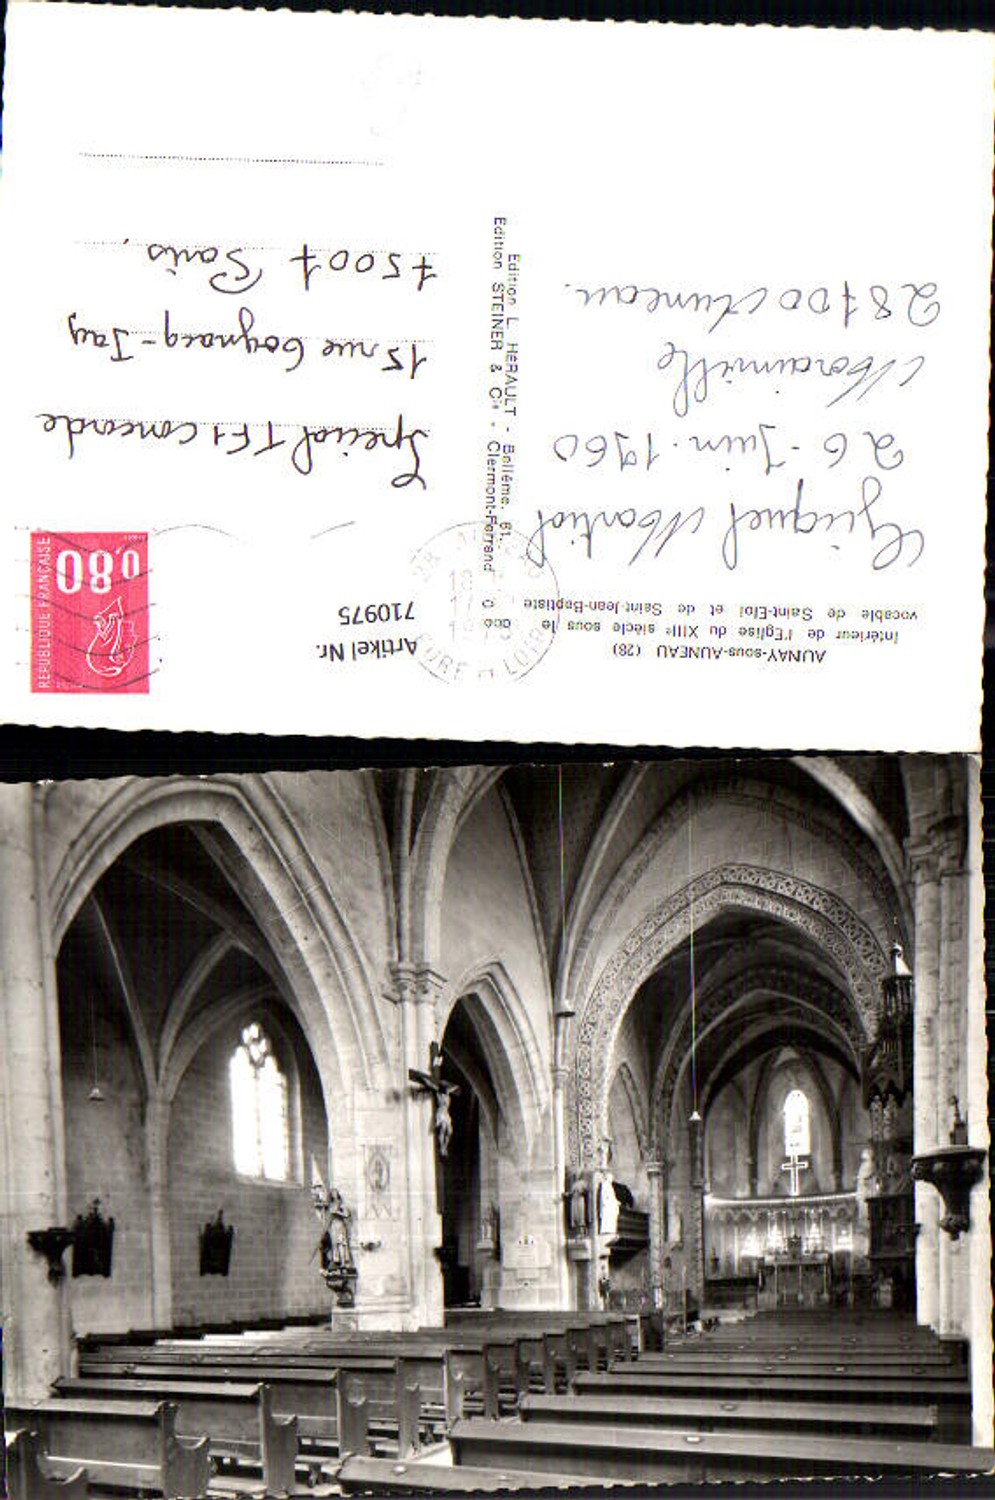 AUNAY-sous-AUNEAU (28)
Intérieur de l'Eglise du XIIIe siècle sous le
vocable de Saint-Eloi et de Saint-Jean-Baptiste
Gicquel Martial
26 - Juin. 1960
Morainville
28700 Auneau.
Edition L. HÉRAULT - Bellême. 61.
Edition STEINER & Cie - Clermont-Ferrand
Artikel Nr.
710975
RÉPUBLIQUE FRANÇAISE
0,80
EURE ET LOIR
Special TF1 concorde
15 rue Cognacq-Jay
75007 Paris.